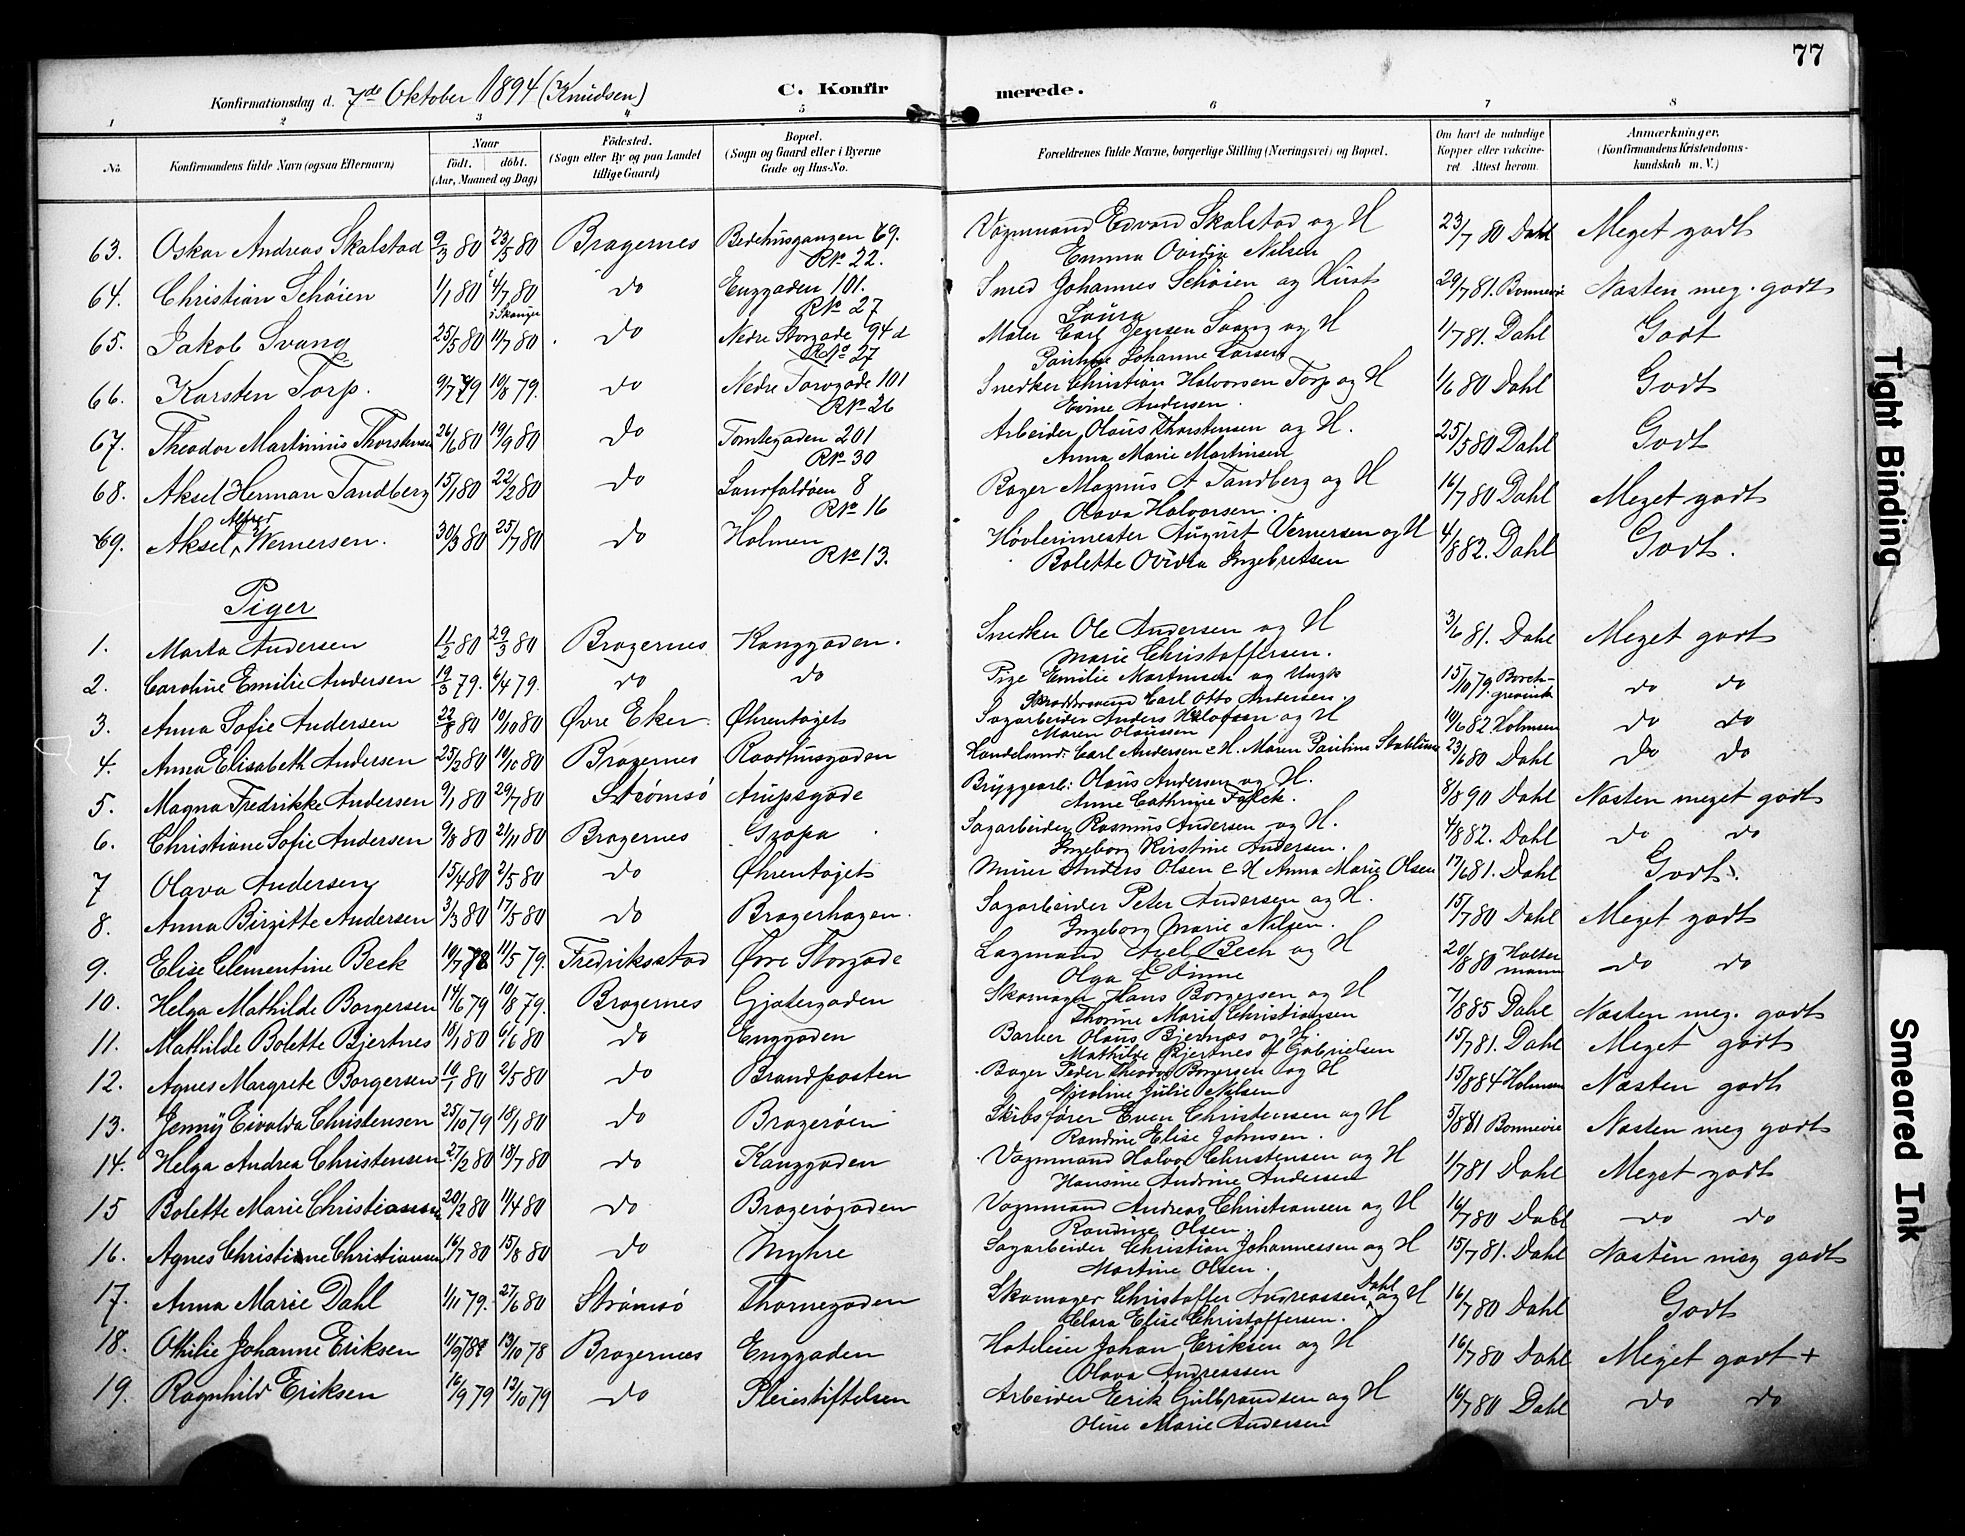 77
Konfirmationsdag d. 7de Oktober 1894 (Knudsen) C. Konfirmerede.
1 2 3 4 5 6 7 8
No. Konfirmandens fulde Navn (ogsaa Efternavn) Naar født. døbt. (Aar, Maaned og Dag) Fødested. (Sogn eller By og paa Landet tillige Gaard) Bopæl. (Sogn og Gaard eller i Byerne Gade og Hus-No. Forældrenes fulde Navne, borgerlige Stilling (Næringsvei) og Bopæl. Om havt de naturlige Kopper eller vakcineret Attest herom. Anmærkninger. (Konfirmandens Kristendomskundskab m. V.)
63. Oskar Andreas Skalstad 9/3 80 23/5 80 Bragernes Bedehusgangen 69. R No 22. Vognmand Edvard Skalstad og H Emma Ovidia Nilsen 23/7 80 Dahl Meget godt
64. Christian Schøien 1/1 80 4/7 80 i Skoger do Enggaden 101. R No 27 Smed Johannes Schøien og Hust Laura 29/7 81. Bonnevie Næsten meg. godt
65. Jakob Svang 25/5 80 11/7 80 do Nedre Storgade 94 d R No 27 Maler Carl Svang og H Johanne Larsen 1/7 81. Dahl Godt
66. Karsten Torp. 9/7 79 10/8 79. do Nedre Torvgade 101 R No 26 Snedker Christian Halvorsen Torp og H Andersen. 1/6 80 Dahl Godt
67. Theodor Martinius Thorstensen 26/6 80 19/9 80 do Tomtegaden 201 R No 30 Arbeider Olaus Thorstensen og H. Anna Marie Martinsen 25/5 80 Dahl Godt
68. Aksel Herman Tandberg 15/1 80 22/2 80 do Landfaldøen 8 R No 16 Bager Magnus A Tandberg og H Olava Halvorsen. 16/7 80 Dahl Meget godt
69. Aksel Alfred Wernersen. 30/3 80 25/7 80 do Holmen R No 13. Høvlerimester August Vernersen og H Bolette Ovidia Ingebretsen 4/8 82. Dahl Godt.
Piger
1. Marta Andersen 11/2 80 29/3 80 Bragernes Konggaden. Snedker Ole Andersen og H Marie Christoffersen. 3/6 81. Dahl Meget godt
2. Caroline Emilie Andersen 19/3 79. 6/4 79. do do Pige Emilie Martinsen og Ungk Carl Otto Andersen. 15/10 79. Borchgrevink do do
3. Anna Sofie Andersen 22/8 80 10/10 80 Øvre Eker Øhrentøjet Sagarbeider Anders Olafsen og H Maren Olaussen 10/6 82. Holmsen do do
4. Anna Elisabeth Andersen 25/2 80 10/10 80 Bragernes Raadhusgaden Handelsmd: Carl Andersen & H. Maren Pauline 23/6 80 Dahl do do
5. Magna Fredrikke Andersen 9/1 80 29/7 80 Strømsø Arupsgade Bryggearb: Olaus Andersen og H. Anne Cathrine Falck. 8/8 90 Dahl Næsten meget godt
6. Christiane Sofie Andersen 9/8 80 21/11 80 Bragernes Gropa Sagarbeider Rasmus Andersen og H. Ingeborg Kirstine Andersen. 4/8 82. Dahl do do
7 Olava Andersen 15/4 80 2/5 80 do Øhrentøjet Murer Anders Olsen & H Anna Marie Olsen 17/6 81. Dahl Godt.
8. Anna Birgitte Andersen 3/3 80 17/5 80 do Bragerhagen. Sagarbeider Peter Andersen og H. Ingeborg Marie Nilsen. 15/7 80 Dahl Meget godt
9. Elise Clementine Beck 10/7 78 11/5 79. Fredriksstad Øvre Storgade Lagmand Axel Bech og H Olga 20/8 80 Holtermann do do
10. Helga Mathilde Borgersen 14/6 79 10/8 79. Bragernes Gjetergaden Skomager Hans Borgersen og H Thorine Marie Christiansen 7/8 85 Dahl Næsten meg. godt
11. Mathilde Bolette Bjertnes 18/1 80 6/6 80 do Enggaden Barber Olaus Bjertnæs og H. Mathilde Bjertnes f Gabrielsen 15/7 81. Dahl Meget godt
12. Agnes Margrete Borgersen 10/1 80 2/5 80 do Brandposten Bager Peder Theodor Borgersen og H Nicoline Julie Nilsen 15/8 84 Holmsen Næsten godt
13. Jenny Eivalda Christensen 25/10 79 18/1 80 do Bragerøen Skibsfører Even Christensen og H Randine Elise Johnsen. 5/8 81 Bonnevie Næsten meg godt
14. Helga Andrea Christensen 27/2 80 18/7 80 do Konggaden Vognmand Halvor Christensen og H Hansine Andrine Andersen 1/7 81 Dahl Meget godt
15 Bolette Marie Christiansen 20/2 80 11/4 80 do Bragerøgaden Vognmand Andreas Christiansen og H Randine Olsen. 16/7 80 Dahl do do
16. Agnes Christiane Christiansen 16/7 80 15/8 80 do Myhre Sagarbeider Christian Johannessen og H Martine Olsen. 15/7 81. Dahl Næsten meg godt
17. Anna Marie Dahl 1/11 79. 27/6 80 Strømsø Thornegaden Skomager Christoffer Andreassen Dahl og H Clara Elise Christoffersen. 16/7 80 Dahl Godt
18. Othilie Johanne Eriksen 11/9 78 13/10 78 Bragernes Enggaden Hoteleier Johan Eriksen og H Olava Andreassen 16/7 80 Dahl Meget godt +
19. Ragnhild Eriksen 16/9 79 12/10 79 do Pleiestiftelsen Arbeider Erik Gulbrandsen og H Oline Marie Andersen 16/7 80 Dahl do do
Tight Binding
Smeared Ink